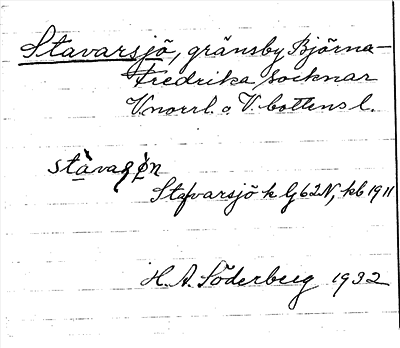 Stavarsjö, gränsby Björna-
Fredrika socknar
Vnorrl. o. V.bottens l.
Stafvarsjö k G62N, kb 1911
H. A. Söderberg 1932